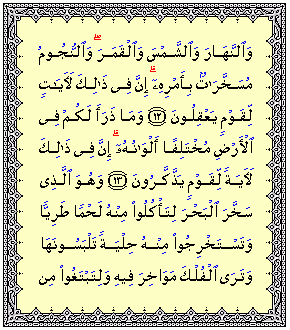 وَٱلنَّهَارَ وَٱلشَّمْسَ وَٱلْقَمَرَ ۖ وَٱلنُّجُومُ
مُسَخَّرَٰتٌۢ بِأَمْرِهِۦٓ ۗ إِنَّ فِى ذَٰلِكَ لَءَايَٰتٍ
لِّقَوْمٍ يَعْقِلُونَ ۝١٢ وَمَا ذَرَأَ لَكُمْ فِى
ٱلْأَرْضِ مُخْتَلِفًا أَلْوَٰنُهُۥٓ ۗ إِنَّ فِى ذَٰلِكَ
لَءَايَةً لِّقَوْمٍ يَذَّكَّرُونَ ۝١٣ وَهُوَ ٱلَّذِى
سَخَّرَ ٱلْبَحْرَ لِتَأْكُلُوا۟ مِنْهُ لَحْمًا طَرِيًّا
وَتَسْتَخْرِجُوا۟ مِنْهُ حِلْيَةً تَلْبَسُونَهَا
وَتَرَى ٱلْفُلْكَ مَوَاخِرَ فِيهِ وَلِتَبْتَغُوا۟ مِن